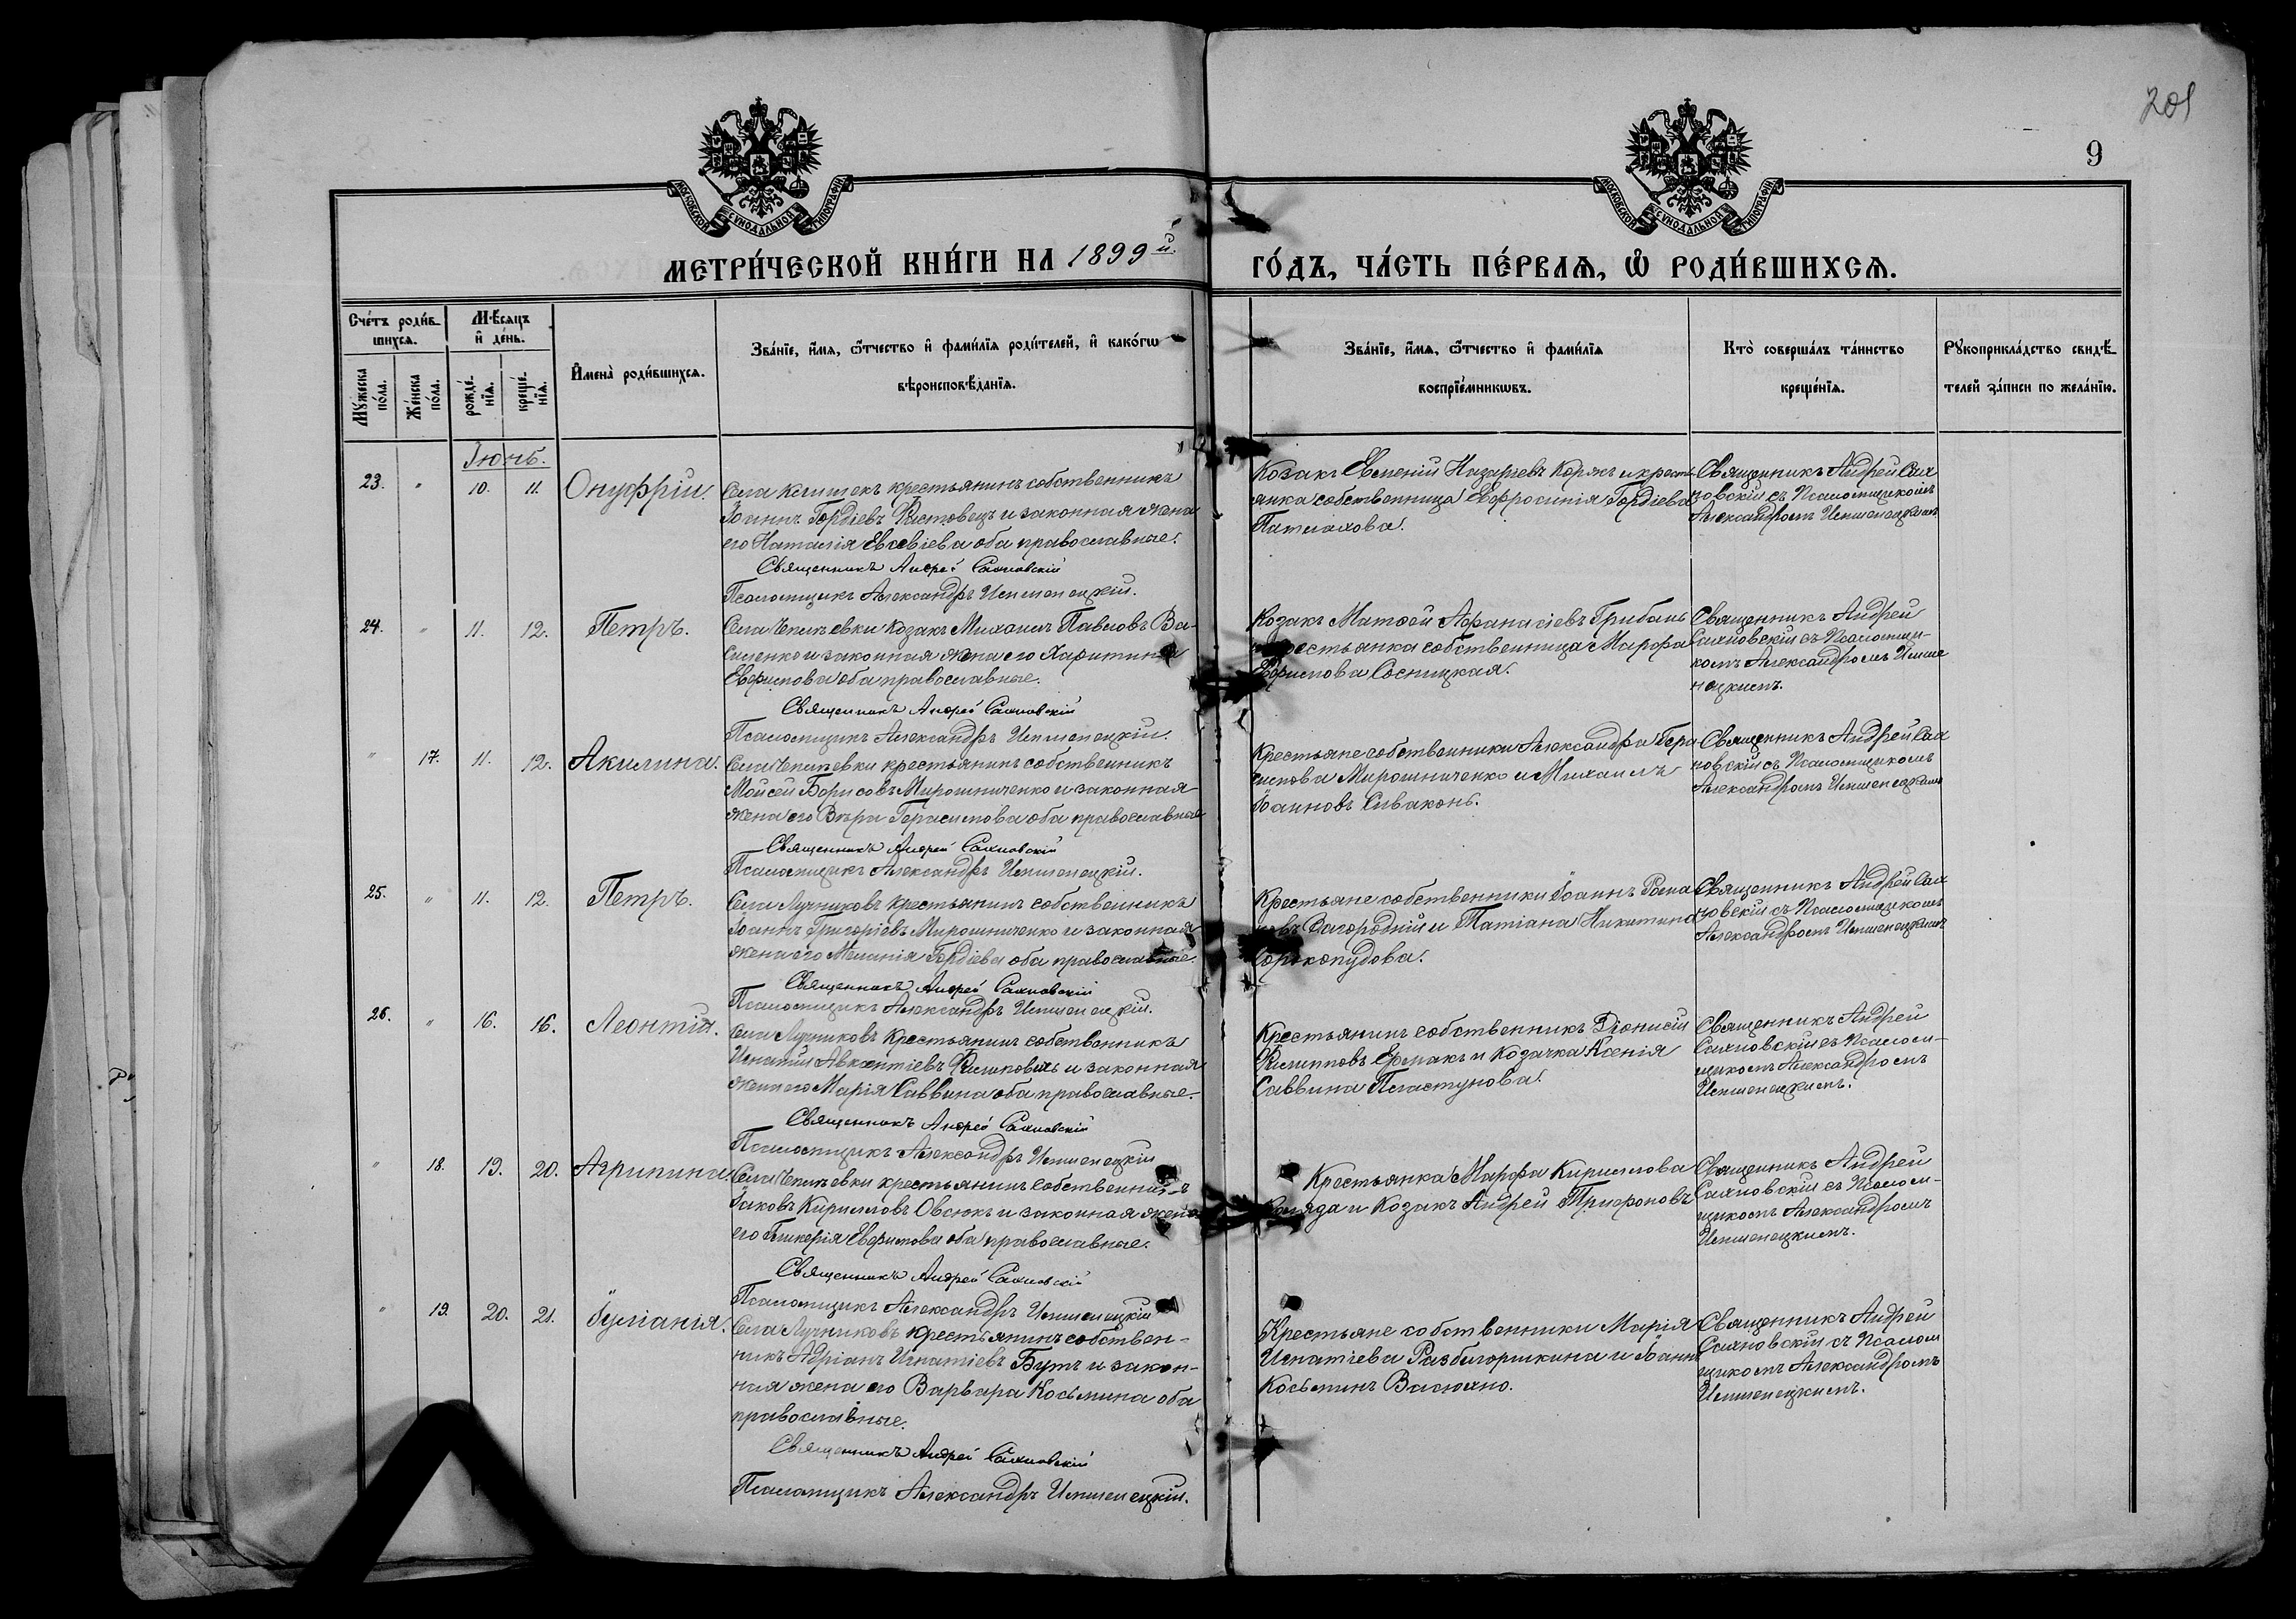 201
9
МОСКОВСКОЙ СѴНОДАЛЬНОЙ ТИПОГРАФІИ
МОСКОВСКОЙ СѴНОДАЛЬНОЙ ТИПОГРАФІИ
МЕТРИ́ЧЕСКОЙ КНИ́ГИ НА 1899й. ГО́ДЪ, ЧА́СТЬ ПЕ́РВАѦ, Ѽ РОДИ́ВШИХСѦ.
Сче́тъ роди́в-
шихсѧ.
Мѣ́сѧцъ
и҆ де́нь.
Мꙋ́жеска по́ла.
Же́нска по́ла.
рожде́-
нїѧ.
креще́-
нїѧ.
И҆мена̀ роди́вшихсѧ.
Зва́нїе, и҆́мѧ, ѻ҆́тчество и҆ фами́лїѧ роди́телей, и҆ како́гѡ
вѣроисповѣ́данїѧ.
Зва́нїе, и҆́мѧ, ѻ҆́тчество и҆ фами́лїѧ
воспрїе́мникѡвъ.
Кто̀ соверша́лъ та́инство
креще́нїѧ.
Рꙋкоприкла́дство свидѣ́-
телей за́писи по жела́нїю.
Іюнь.
23. " 10. 11. Онуфрій.
Села крестьянинъ собственникъ
Іоаннъ Гордіевъ Ростовецъ и законная жена
его Наталія Евсевіева оба православные.
Священникъ Андрей Сахновскій
Псаломщикъ Александръ Ипшенецкій.
Козакъ Евменій Назаріевъ Коржъ и кресть-
янка собственница Евфросинія Гордіева
Патлахова.
Священникъ Андрей Сах
новскій съ Псаломщикомъ
Александромъ Ипшенецкимъ
24. " 11. 12. Петръ.
Села Чепиъевки Козакъ Михаилъ Павловъ Ва-
силенко и законная жена его Харитина
Евфимова оба православные.
Священникъ Андрей Сахновскій
Псаломщикъ Александръ Ипшенецкій.
Козакъ Матѳей Афанасіевъ Грибань
и крестьянка собственница Марфа
Ефимова Сосницкая.
Священникъ Андрей
Сахновскій съ Псаломщи-
комъ Александромъ Ипше
нецкимъ.
" 17. 11. 12. Акилина.
Села крестьянинъ собственникъ
Моисей Борисовъ Мирошниченко и законная
жена его Вѣра Герасимова оба православные
Священникъ Андрей Сахновскій
Псаломщикъ Александръ Ипшенецкій.
Крестьяне собственники Александра Гера
симова Мирошниченко и Михаилъ
Іоанновъ Сиваконь.
Священникъ Андрей Сах
новскій съ Псаломщикомъ
Александромъ Ипшенецкимъ
25. " 11. 12. Петръ.
Села Лучниковъ крестьянинъ собственникъ
Іоаннъ Григоріевъ Мирошниченко и законная
жена его Меланія Гордіева оба православные.
Священникъ Андрей Сахновскій
Псаломщикъ Александръ Ипшенецкій.
Крестьяне собственники Іоаннъ Рома
новъ Загородній и Татіана Никитина
Священникъ Андрей Сах
новскій съ Псаломщикомъ
Александромъ Ипшенецкимъ
26. " 16. 16. Леонтій.
Села Лучниковъ Крестьянинъ собственникъ
Игнатій Авксентіевъ и законная
жена его Марія Саввина оба православные.
Священникъ Андрей Сахновскій
Псаломщикъ Александръ Ипшенецкій
Крестьянинъ собственникъ Діонисій
Филипповъ Ермакъ и Козачка Ксенія
Саввина Пластунова.
Священникъ Андрей
Сахновскій съ Псалом-
щикомъ Александромъ
Ипшенецкимъ.
" 18. 19. 20. Агрипина.
Села крестьянинъ собственникъ
Іаковъ Кирилловъ Овсюкъ и законная жена
его Гликерія Евфимова оба православные.
Священникъ Андрей Сахновскій
Псаломщикъ Александръ Ипшенецкій
Крестьянка Марфа Кириллова
Коляда и Козакъ Андрей Трифоновъ
Священникъ Андрей
Сахновскій съ Псалом-
щикомъ Александромъ
Ипшенецкимъ.
" 19. 20. 21. Іуліанія.
Села Лучниковъ крестьянинъ собствен-
никъ Адріанъ Игнатіевъ Бутъ и закон-
ная жена его Варвара Косьмина оба
православные.
Священникъ Андрей Сахновскій
Псаломщикъ Александръ Ипшенецкій.
Крестьяне собственники Марія
Игнатіева и Іоаннъ
Косьминъ Васюхно.
Священникъ Андрей
Сахновскій съ Псалом
щикомъ Александромъ
Ипшенецкимъ.